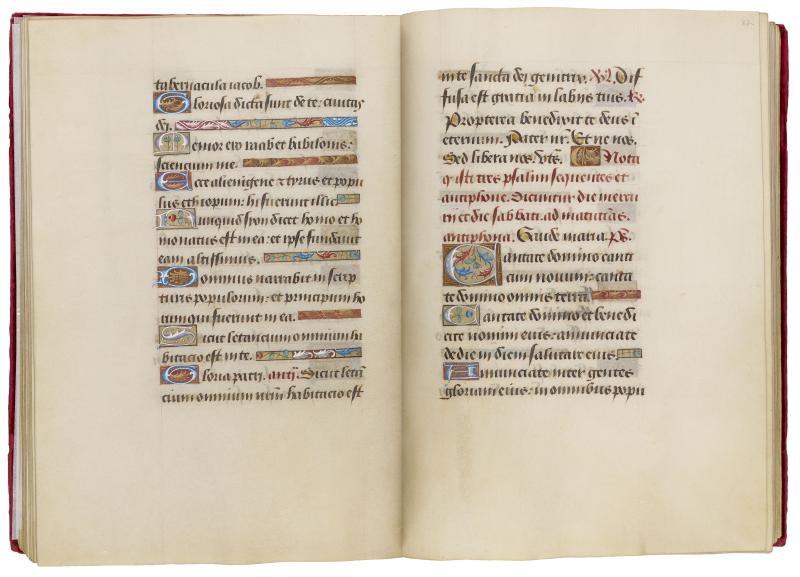 tabernacula iacob.
Gloriosa dicta sunt de te: ciuitas
dei.
Memor ero raab et babilonis:
scientium me.
Ecce alienigene et tyrus et popu
lus ethiopum: hi fuerunt illic
Nunquid syon dicet homo et ho
mo natus est in ea: et ipse fundauit
eam altissimus.
Dominus narrabit in scrip
turis populorum: et principum ho
rum qui fuerunt in ea.
Sicut letancium omnium ha
bitacio est in te.
Gloria patri. antiꝭ. Sicut letan
cium omnium nrm̄ habitacio est
82
in te sancta dei genitrix. V. Dif
fusa est gratia in labijs tuis. R.
Propterea benedixit te deus in
eternum. Pater nr̄. Et ne nos.
Sed libera nos. Nota
q̄ isti tres psalmi sequentes et
antiphone. Dicuntur die mercu
rij et die sabbati. ad matutinas.
antiphona. Gaude maria. ps.
Cantate domino canti
cum nouum: canta
te domino omnis terra.
Cantate domino et benedi
cite nomini eius: annunciate
de die in diem salutare eius.
Annunciate inter gentes
gloriam eius: in omnibus popu